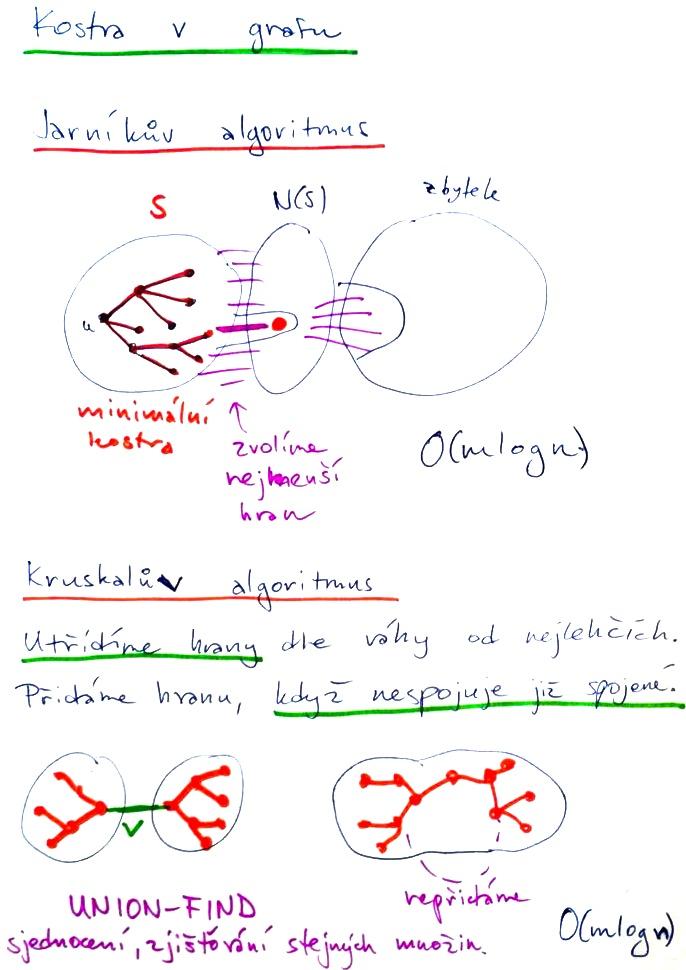 Kostra v grafu
Jarníkův algoritmus
S
N(S)
zbytek
u
minimální
kostra
zvolíme
nejmenší
hran
O(m log n)
Kruskalův algoritmus
Utřídíme hrany dle váhy od nejlehčích.
Přidáme hranu, když nespojuje již spojené.
nepřidáme
UNION-FIND
sjednocení, zjišťování stejných množin.
O(m log n)